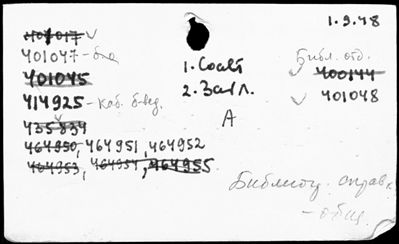 1.9.48
401017
401047 - бла
401045
414925 - каб. б-вед.
435834
464950, 464951, 464952
464953, 464954, 464955
1. Coalt
2. Зал Л.
А
Библ. отд.
400144
401048
Библиогр. справ.
- общ.